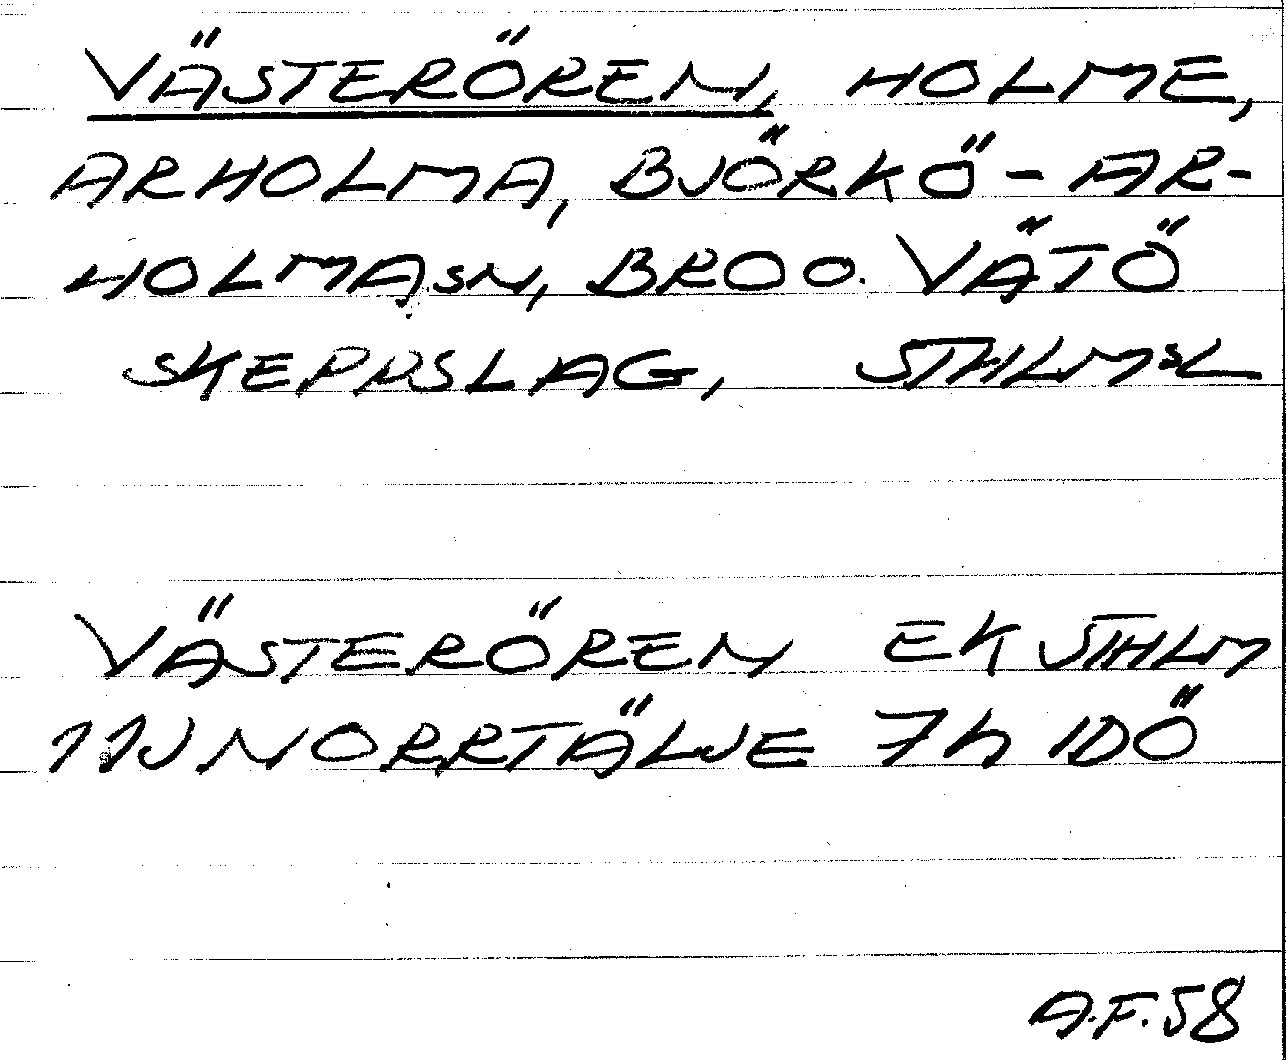 VÄSTERÖREN, HOLME,
ARHOLMA, BJÖRKÖ-AR-
HOLMASN, BRO O. VÄTÖ
SKEPPSLAG, STHLMSL
VÄSTERÖREN EK STHLM
11J NORRTÄLJE 7h IDÖ
A.F.58